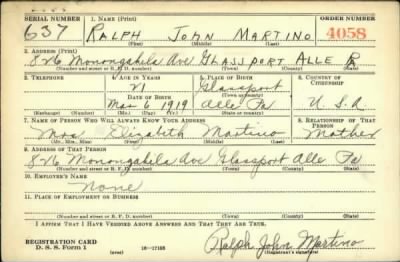 SERIAL NUMBER 1. NAME (Print) ORDER NUMBER
637 RALPH JOHN MARTINO 4058
(First) (Middle) (Last)
2. ADDRESS (Print)
826 Monongahela Ave GLASSPORT ALLE Pa
(Number and street or R. F. D. number) (Town) (County) (State)
3. TELEPHONE 4. AGE IN YEARS 5. PLACE OF BIRTH 6. COUNTRY OF CITIZENSHIP
21 Glassport
(Town or county)
DATE OF BIRTH
Mar 6 1919 Alle Pa U.S.A.
(Exchange) (Number) (Mo.) (Day) (Yr.) (State or country)
7. NAME OF PERSON WHO WILL ALWAYS KNOW YOUR ADDRESS 8. RELATIONSHIP OF THAT PERSON
Mrs Elizabeth Martino Mother
(Mr., Mrs., Miss) (First) (Middle) (Last)
9. ADDRESS OF THAT PERSON
826 Monongahela Ave Glassport Alle Pa
(Number and street or R. F. D. number) (Town) (County) (State)
10. EMPLOYER'S NAME
None
11. PLACE OF EMPLOYMENT OR BUSINESS
(Number and street or R. F. D. number) (Town) (County) (State)
I AFFIRM THAT I HAVE VERIFIED ABOVE ANSWERS AND THAT THEY ARE TRUE.
REGISTRATION CARD
D. S. S. Form 1 16-17105 Ralph John Martino
(Registrant's signature)